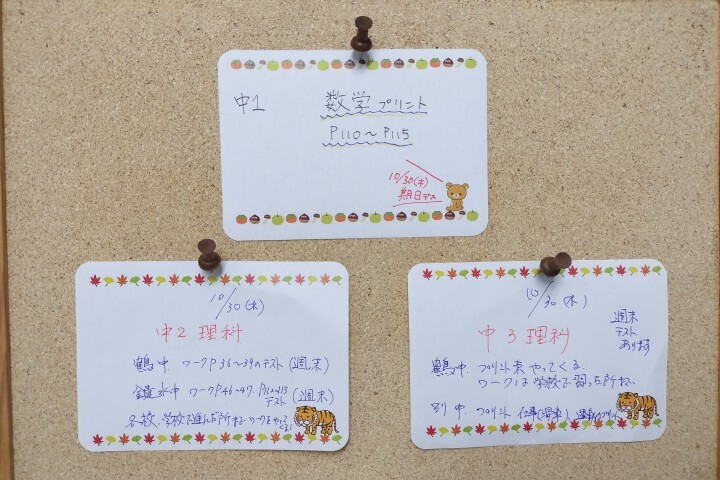 中1 数学 プリント
P110～P115
10/30(木)
期日デス
10/30(木)
中2 理科
鶴中 ワークP36～39のテスト(週末)
ワークP46～47. P112~113
テスト (週末)
各校、学校で進んだ所まで ワークをやって
10/30(木)
中3理科
週末
テスト
あります
鶴中. プリント来やってくる.
ワークは学校で習った所まで.
中. プリント 仕事(